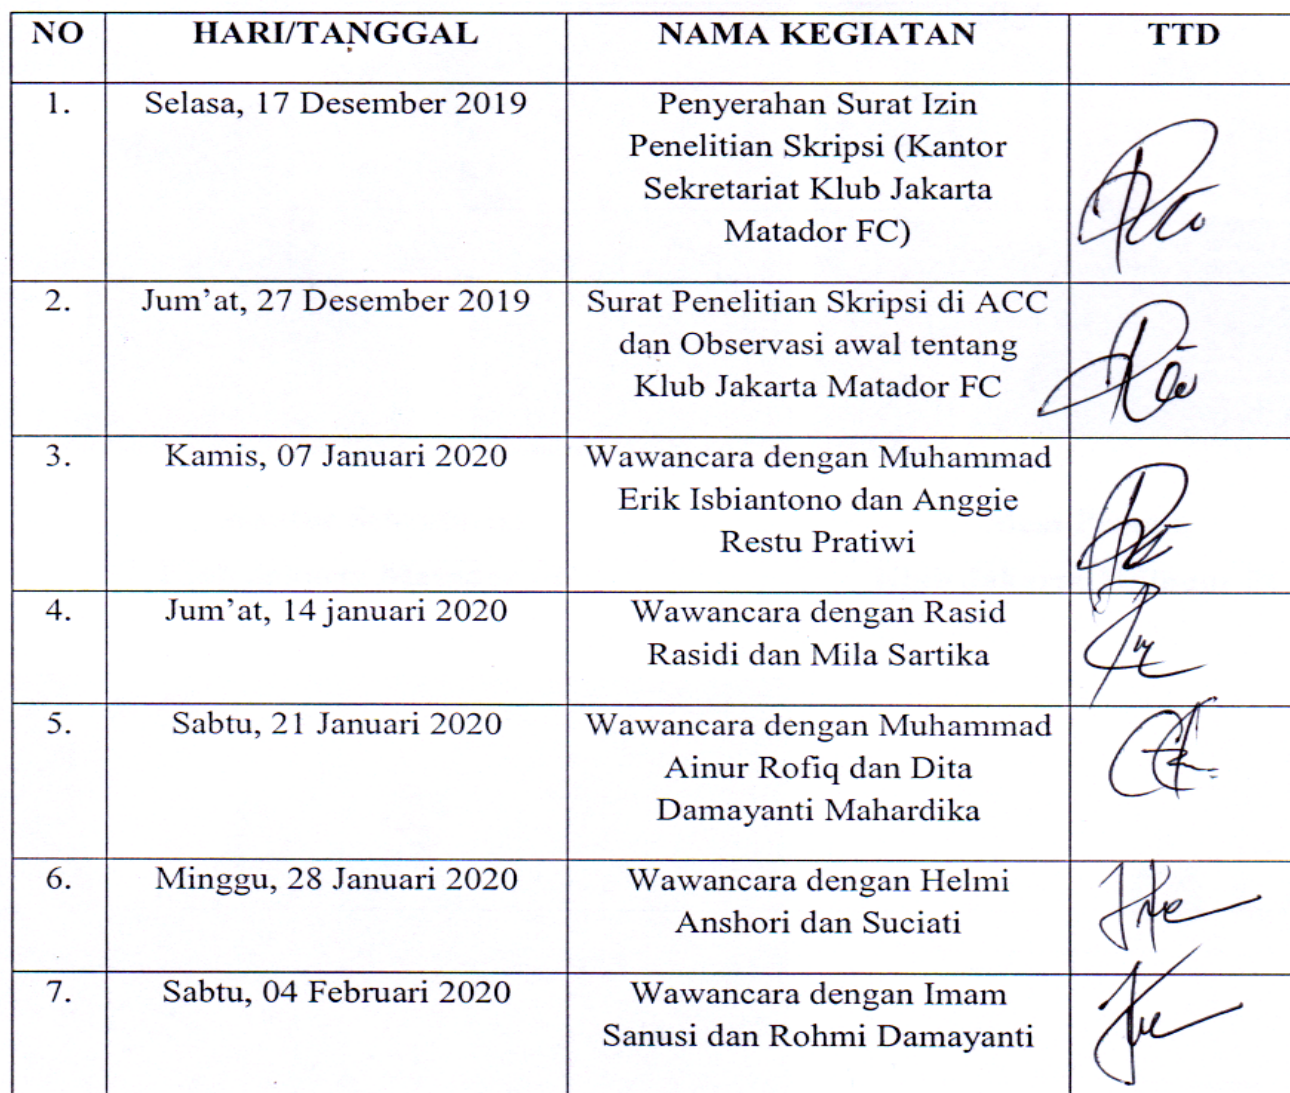 NO HARI/TANGGAL NAMA KEGIATAN TTD
1. Selasa, 17 Desember 2019 Penyerahan Surat Izin
Penelitian Skripsi (Kantor
Sekretariat Klub Jakarta
Matador FC)
2. Jum’at, 27 Desember 2019 Surat Penelitian Skripsi di ACC
dan Observasi awal tentang
Klub Jakarta Matador FC
3. Kamis, 07 Januari 2020 Wawancara dengan Muhammad
Erik Isbiantono dan Anggie
Restu Pratiwi
4. Jum’at, 14 januari 2020 Wawancara dengan Rasid
Rasidi dan Mila Sartika
5. Sabtu, 21 Januari 2020 Wawancara dengan Muhammad
Ainur Rofiq dan Dita
Damayanti Mahardika
6. Minggu, 28 Januari 2020 Wawancara dengan Helmi
Anshori dan Suciati
7. Sabtu, 04 Februari 2020 Wawancara dengan Imam
Sanusi dan Rohmi Damayanti